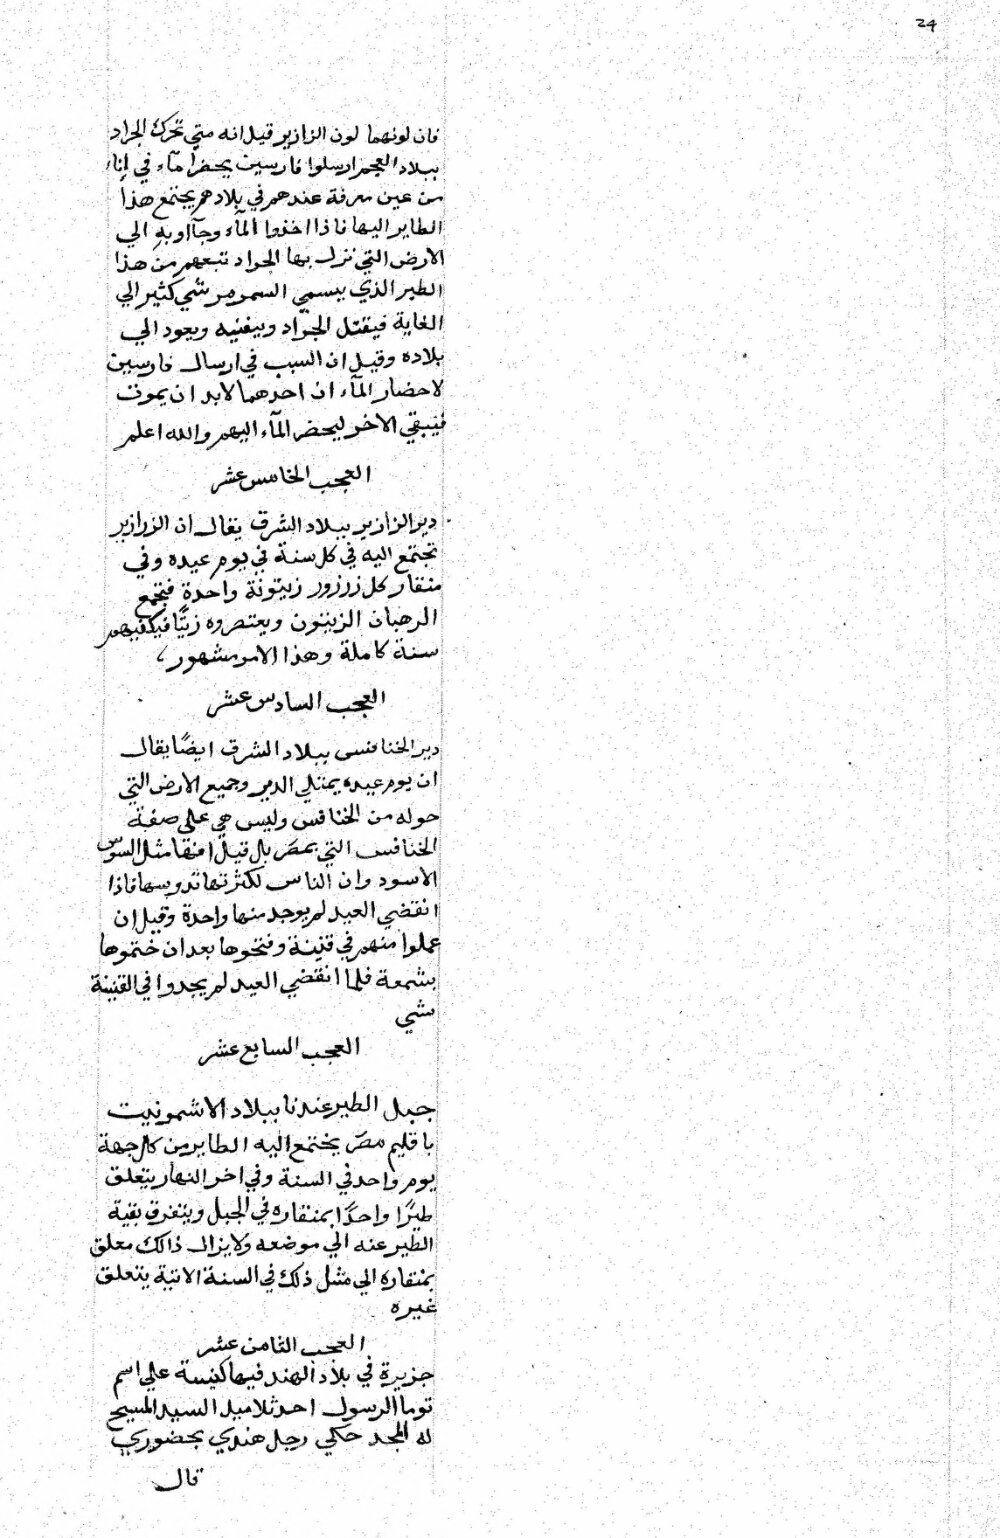 24
فان لونهما لون الزازير قيل انه متي تحرك الجراد
ببلاد العجم ارسلوا فارسين يحضرا مآء في إناء
من عين معرفة عندهم في بلادهم يجتمع هذا
الطاير اليها فاذا اخذوا المآء وجآاو به الي
الارض التي نزل بها الجراد تبعهم من هذا
الطير الذي يسمي السمومر شي كثير الي
الغاية فيقتل الجراد ويفنيه ويعود الي
بلاده وقيل ان السبب في ارسال فارسين
لاحضار المآء ان احدهما لابد ان يموت
فيبقي الاخر ليحضر المآء اليهم والله اعلم
العجب الخامس عشر
دير الزازير ببلاد الشرق يقال ان الزرازير
تجتمع اليه في كل سنة في يوم عيده وفي
منقار كل زرزور زيتونة واحدة فيجمع
الرهبان الزيتون ويعتصروه زيتًا فيكفيهم
سنة كاملة وهذا الامر مشهور
العجب السادس عشر
دير الخنافس ببلاد الشرق ايضًا يقال
ان يوم عيده يمتلي الدير وجميع الارض التي
حوله من الخنافس وليس هي علي صفة
الخنافس التي بمصر بال قيل انها مثل السوس
الاسود وان الناس لكثرتها تدوسها فاذا
انقضي العيد لم يوجد منها واحدة وقيل ان
عملوا منهم في قنينة وفتحوها بعد ان ختموها
بشمعة فلما انقضي العيد لم يجدوا في القنينة
شي
العجب السابع عشر
جبل الطير عندنا ببلاد الاشمونيت
باقليم مصر يجتمع اليه الطاير من كل جهة
يوم واحد في السنة وفي اخر النهار يتعلق
طيرًا واحدًا بمنقاره في الجبل ويتفرق بقية
الطير عنه الي موضعه ولا يزال ذالك معلق
بمنقاره الي مثل ذلك في السنة الاتية يتعلق
غيره
العجب الثامن عشر
جزيرة في بلاد الهند فيها كنيسة علي اسم
توما الرسول احد تلاميد السيد المسيح
له المجد حكي رجل هندي بحضوري
قال